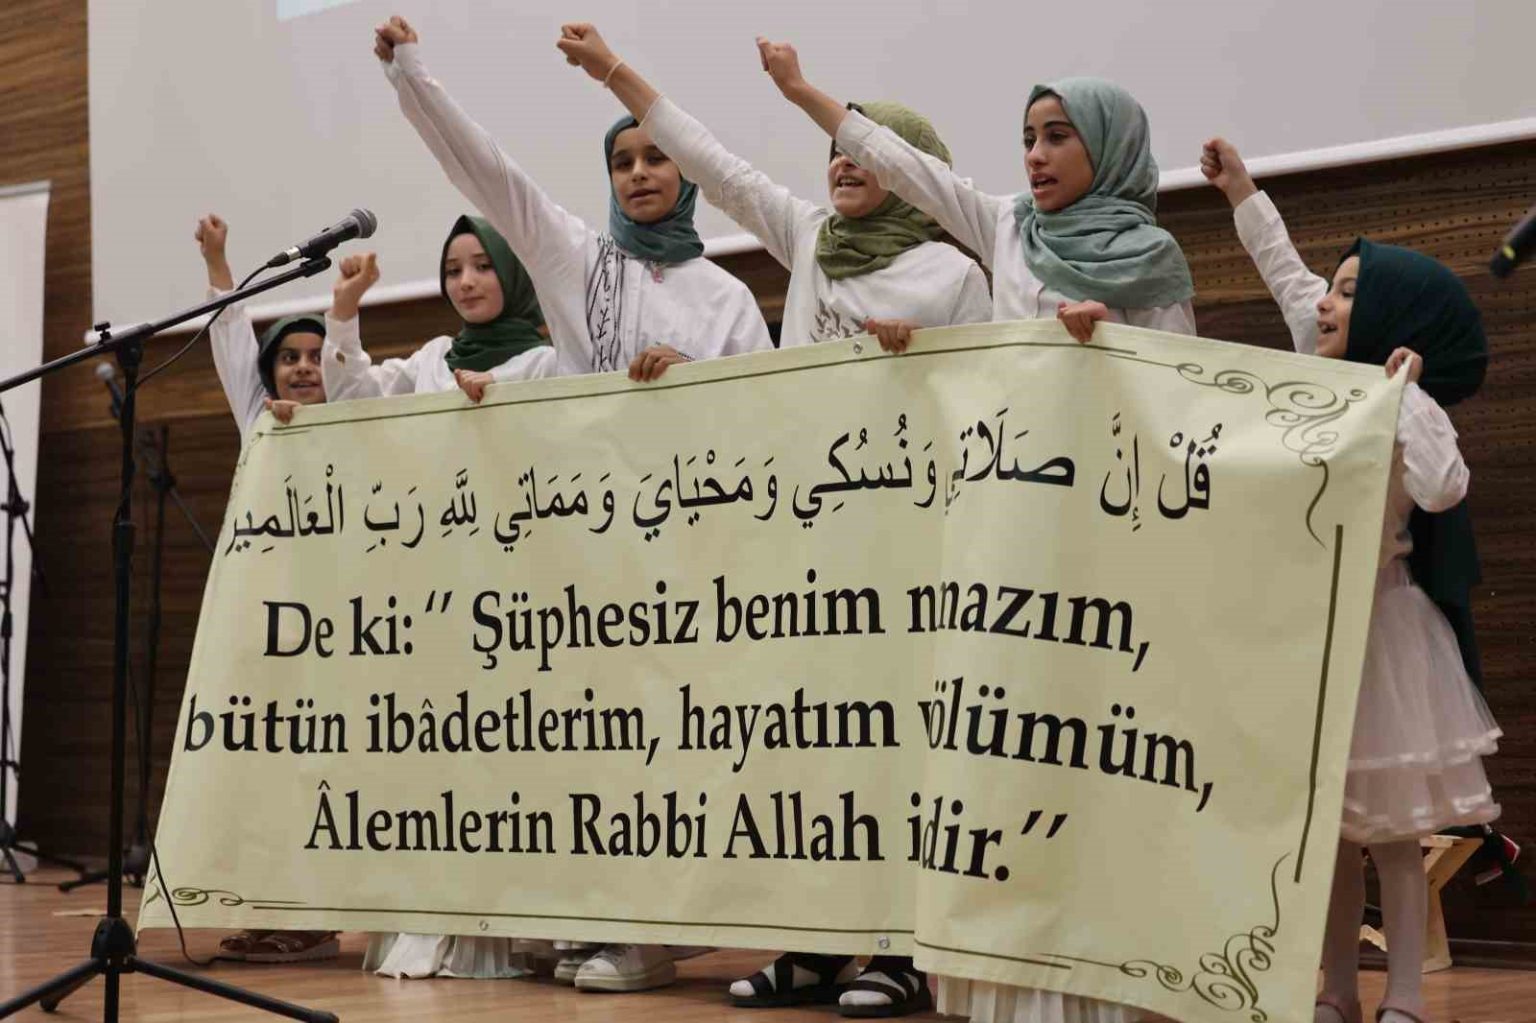 قُلْ إِنَّ صَلَاتِي وَنُسُكِي وَمَحْيَايَ وَمَمَاتِي لِلَّهِ رَبِّ الْعَالَمِير
De ki: ‘‘ Şüphesiz benim nmazım,
bütün ibâdetlerim, hayatım völümüm,
Âlemlerin Rabbi Allah idir.’’